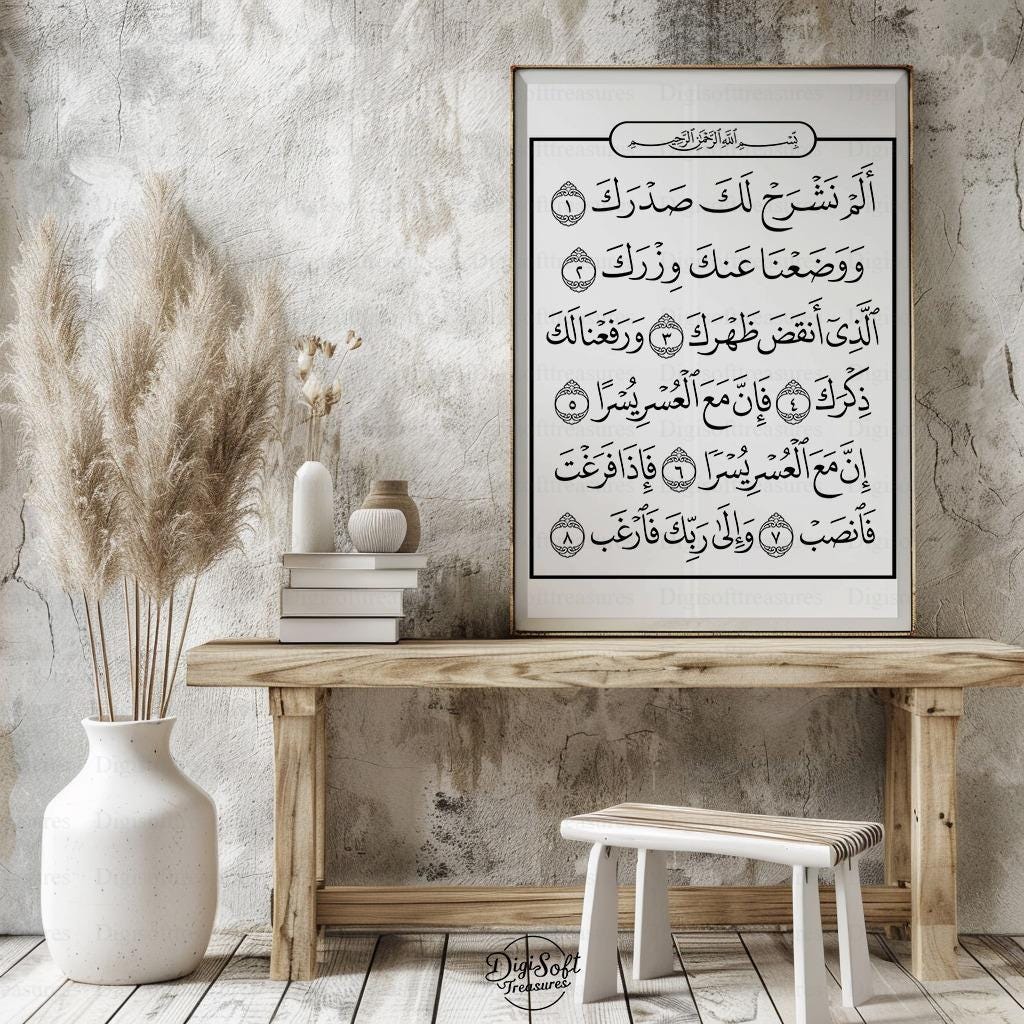 بِّسْمِ ٱللَّهِ ٱلرَّحْمَٰنِ ٱلرَّحِيمِ
أَلَمْ نَشْرَحْ لَكَ صَدْرَكَ ١
وَوَضَعْنَا عَنكَ وِزْرَكَ ٢
ٱلَّذِىٓ أَنقَضَ ظَهْرَكَ ٣ وَرَفَعْنَا لَكَ
ذِكْرَكَ ٤ فَإِنَّ مَعَ ٱلْعُسْرِ يُسْرًا ٥
إِنَّ مَعَ ٱلْعُسْرِ يُسْرًا ٦ فَإِذَا فَرَغْتَ
فَٱنصَبْ ٧ وَإِلَىٰ رَبِّكَ فَٱرْغَب ٨
DigiSoft
Treasures
Digisofttreasures